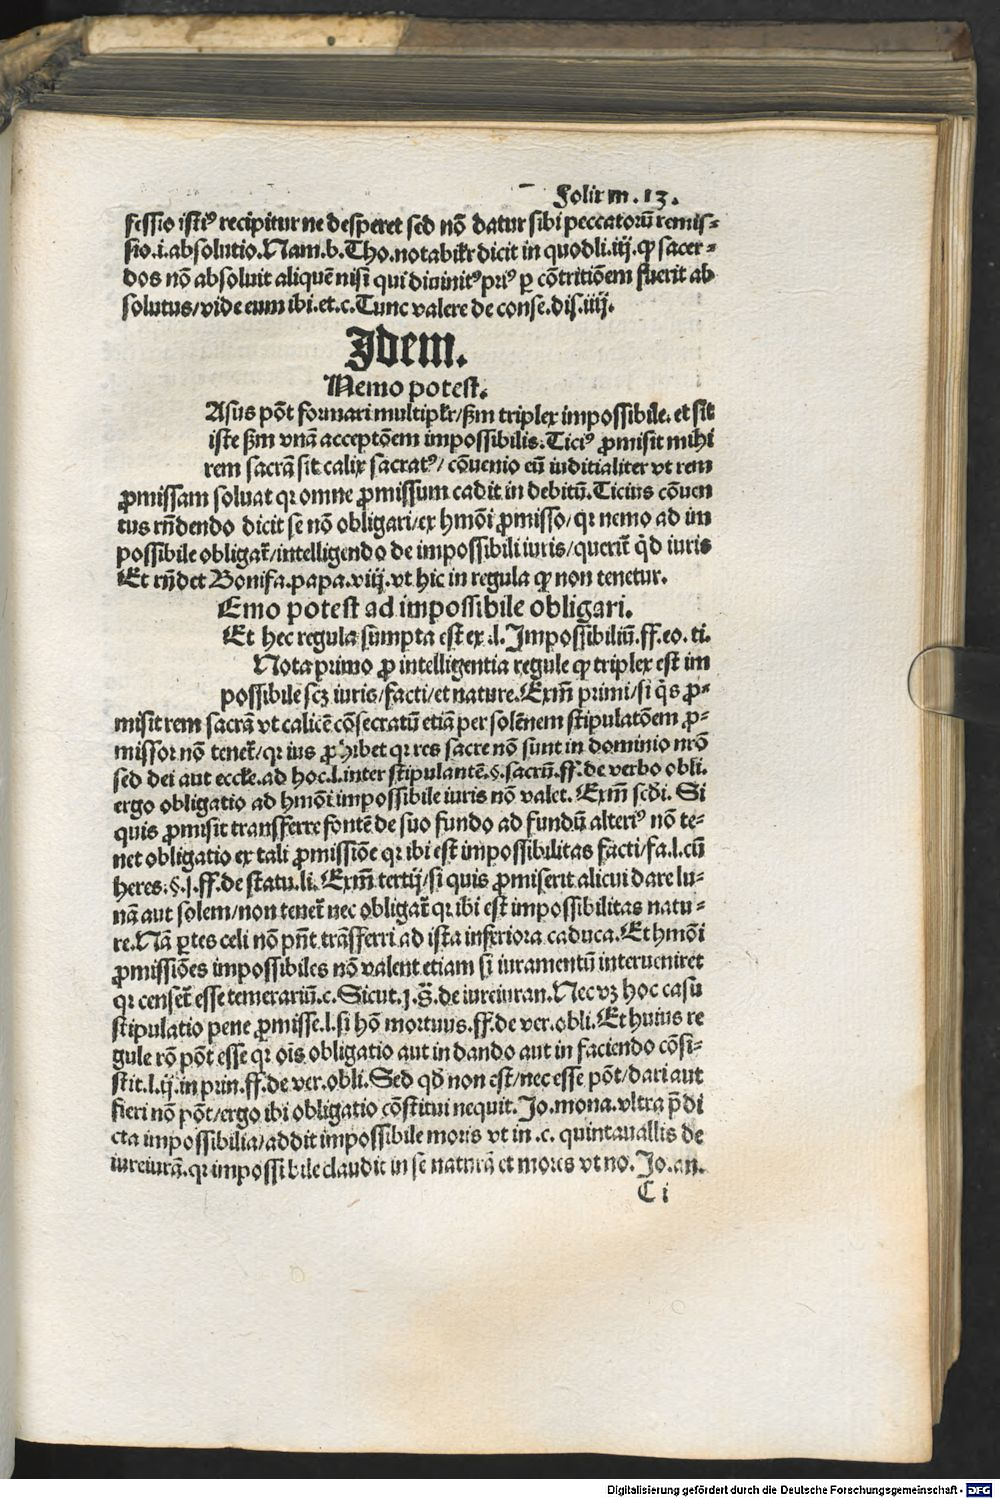 Foliū m.13.
fessio istiꝰ recipitur ne desperet sed nō datur sibi peccatorū remis⸗
sio.i.absolutio.Nam.b.Tho.notabilr̄ dicit in quodli.iij.ꝙ sacer⸗
dos nō absoluit aliquē nisi qui diuinitꝰ priꝰ ꝑ cōtritiōem fuerit ab
solutus/vide eum ibi.et.c.Tunc valere de conse.dis.iiij.
Idem.
Nemo potest.
Asus pōt formari multiplr̄/scd̄m triplex impossibile.et sit
iste scd̄m vnā acceptōem impossibilis.Ticiꝰ ꝓmisit mihi
rem sacrā sit calix sacratꝰ/cōuenio eū iuditialiter vt rem
ꝓmissam soluat qr omne ꝓmissum cadit in debitū.Ticius cōuen
tus rn̄dendo dicit se nō obligari/ex hmōi ꝓmisso/qr nemo ad im
possibile obligat̄/intelligendo de impossibili iuris/querit̄ qd̄ iuris
Et rn̄det Bonifa.papa.viij.vt hic in regula ꝙ non tenetur.
Emo potest ad impossibile obligari.
Et hec regula sumpta est ex.l.Impossibiliū.ff.eo.ti.
Nota primo ꝓ intelligentia regule ꝙ triplex est im
possibile scꝫ iuris/facti/et nature.Exm̄ primi/si qͥs ꝓ⸗
misit rem sacrā vt calicē cōsecratū etiā per solēnem stipulatōem ꝓ⸗
missor nō tenet̄/qr ius ꝓhibet qr res sacre nō sunt in dominio nrō
sed dei aut eccle̅.ad hoc.l.inter stipulantē.§.sacrū.ff.de verbo obli.
ergo obligatio ad hmōi impossibile iuris nō valet.Exm̄ scd̄i. Si
quis ꝓmisit transferre fontē de suo fundo ad fundū alteriꝰ nō te⸗
net obligatio ex tali ꝓmissiōe qr ibi est impossibilitas facti/fa.l.cū
heres.§.j.ff.de statu.li.Exm̄ tertij/si quis ꝓmiserit alicui dare lu⸗
nā aut solem/non tenet̄ nec obligat̄ qr ibi est impossibilitas natu⸗
re.Nā ꝑtes celi nō pn̄t trāsferri ad ista inferiora caduca.Et hmōi
ꝓmissiōes impossibiles nō valent etiam si iuramentū interueniret
qr censet̄ esse temerariū.c.Sicut.j.§.de iureiuran.Nec vꝫ hoc casu
stipulatio pene ꝓmisse.l.si hō mortuus.ff.de ver.obli.Et huius re
gule rō pōt esse qr oīs obligatio aut in dando aut in faciendo cōsi⸗
stit.l.ij.in prin.ff.de ver.obli.Sed qd̄ non est/nec esse pōt/dari aut
fieri nō pōt/ergo ibi obligatio cōstitui nequit.Jo.mona.vltra p̄di
cta impossibilia/addit impossibile moris vt in .c. quintauallis de
iureiurā.qr impossibile claudit in se naturā et mores vt no.Jo.an.
C i
Digitalisierung gefördert durch die Deutsche Forschungsgemeinschaft - DFG